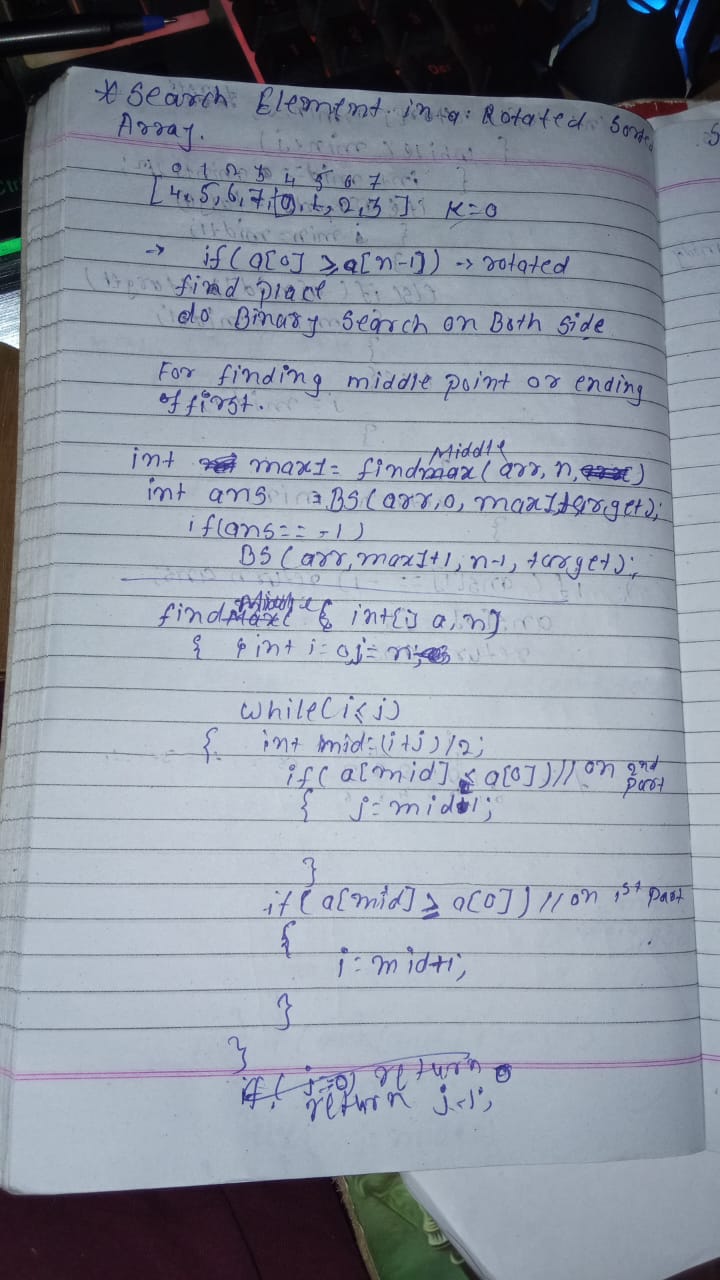 * Search Element in a Rotated Sorted
Array.
0 1 2 3 4 5 6 7
[4, 5, 6, 7, 0, 1, 2, 3] K=0
→ if(a[0] ≥ a[n-1]) → rotated
find place
do Binary Search on Both Side
For finding middle point or ending
of first.
int max1= findMiddle(arr, n,)
int ans = BS(arr, 0, max1, target);
if(ans== -1)
BS(arr, max1+1, n-1, target);
findMiddle( int[] a, n)
{ int i=0 j=n;
while(i<j)
{ int mid=(i+j)/2;
if( a[mid] < a[0]) // on 2nd Part
{ j=mid;
}
if(a[mid] ≥ a[0]) // on 1st Part
{
i=mid+1;
}
}
return j-1;